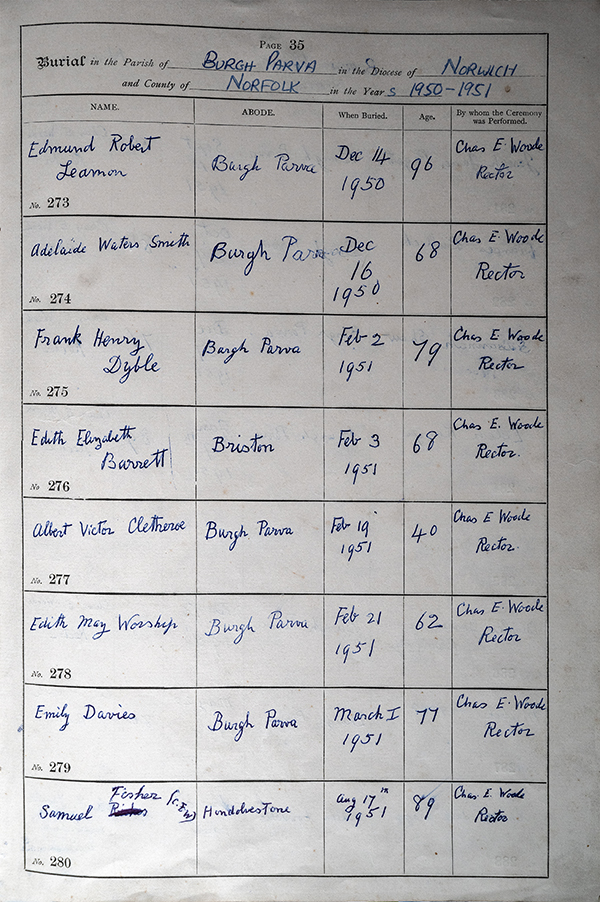 PAGE 35
Burial in the Parish of BURGH PARVA in the Diocese of NORWICH
and County of NORFOLK in the Years 1950-1951
NAME. ABODE. When Buried. Age. By whom the Ceremony was Performed.
Edmund Robert Leamon Burgh Parva Dec 14 1950 96 Chas E. Woode Rector
No. 273
Adelaide Waters Smith Burgh Parva Dec 16 1950 68 Chas E Woode Rector
No. 274
Frank Henry Dyble Burgh Parva Feb 2 1951 79 Chas E Woode Rector
No. 275
Edith Elizabeth Barrett Briston Feb 3 1951 68 Chas E. Woode Rector.
No 276
Albert Victor Cletheroe Burgh Parva Feb 19 1951 40 Chas E Woode Rector.
No. 277
Edith May Worship Burgh Parva Feb 21 1951 62 Chas E. Woode Rector
No. 278
Emily Davies Burgh Parva March 1 1951 77 Chas E. Woode Rector
No. 279
Samuel Fisher Hindolvestone Aug 17th 1951 89 Chas. E. Woode Rector.
No. 280